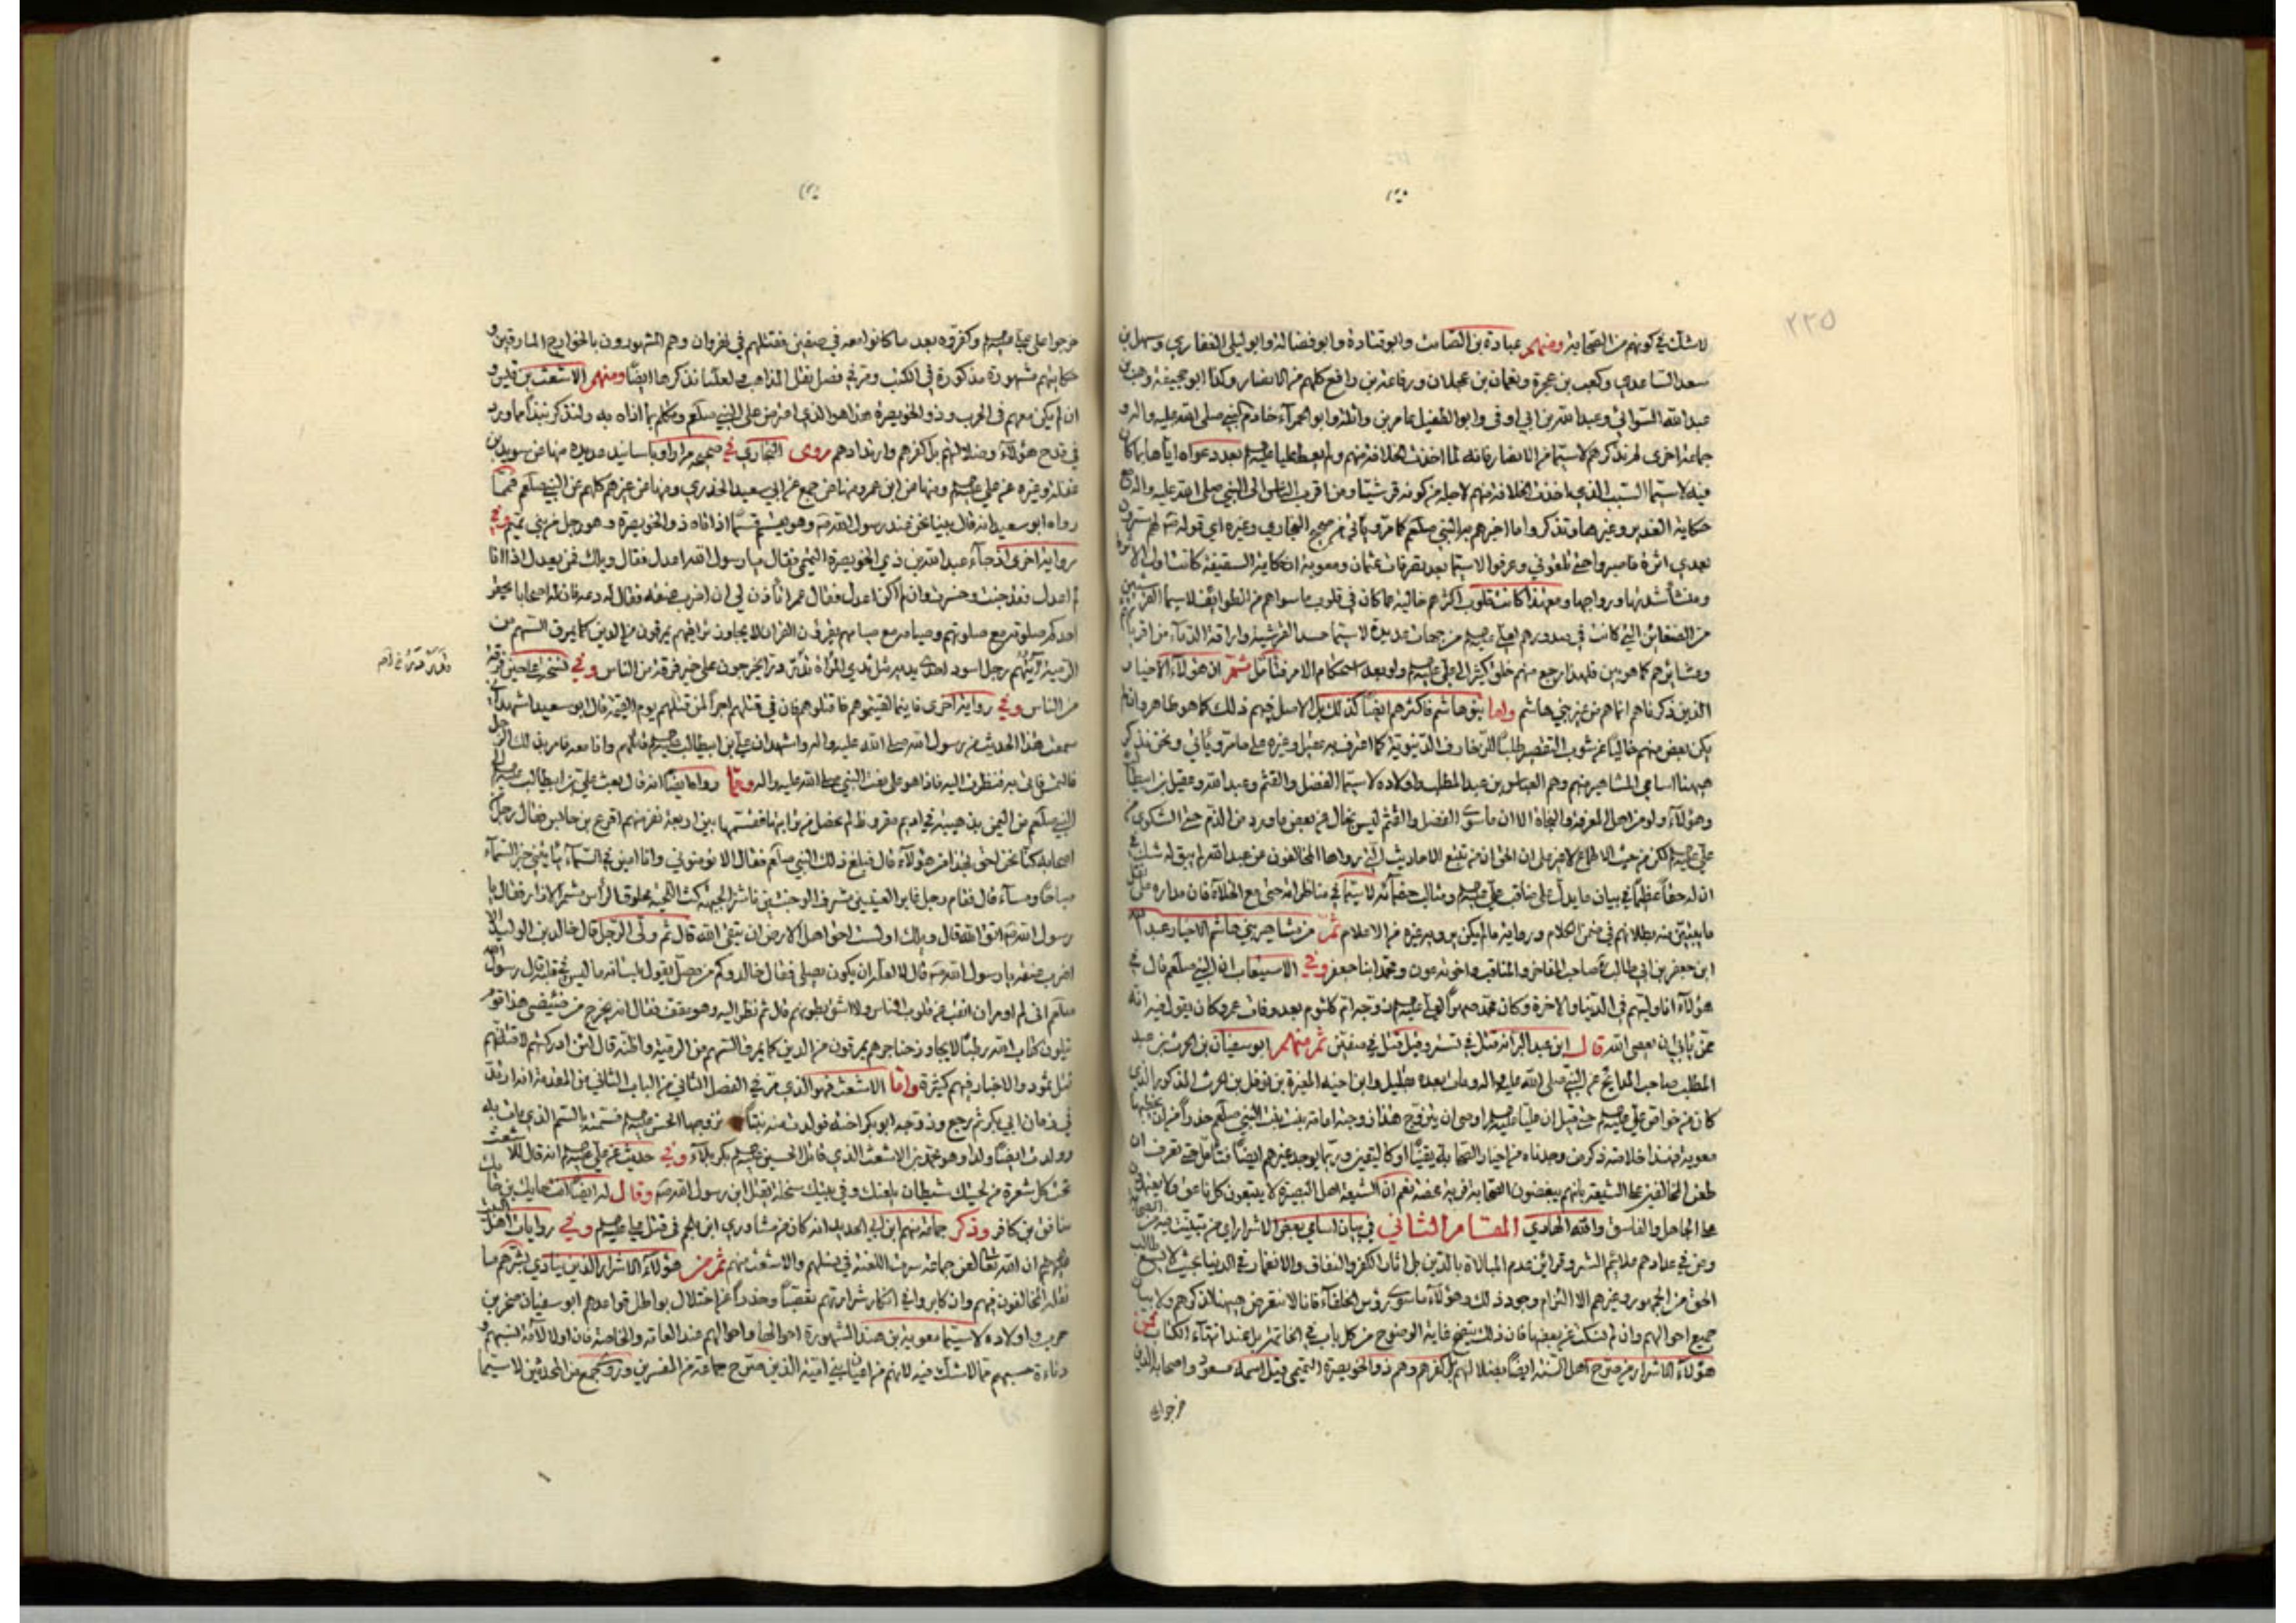 ٢٢٥
لا شك في كونهم من الصحابة ومنهم عبادة بن الصامت وابو قتادة وابو فضالة وابو ليلى الغفاري وسهل بن
سعد الساعدي وكعب بن عجرة ونعمان بن عجلان ورفاعة بن رافع كلهم من الانصار وكذا ابو جحيفة وهب بن
عبد الله السوائي وعبد الله بن ابي اوفى وابو الطفيل عامر بن واثلة وابو الحمراء خادم النبي صلى الله عليه واله و
جماعة اخرى لم نذكرهم لا سيما من الانصار فانه لما اخذت الخلافة منهم ولم يعط عليا بعد دعواه اياها
فيه لا سيما السبب الذي اخذت الخلافة منهم لاجله من كونه قرشيا ومن اقرب الناس الى النبي صلى الله عليه واله مع
حكاية الغدير وغيرها وتذكروا ما اخبرهم به النبي صلعم كما مر وياتي من صحيح البخاري وغيره اي قوله لهم سترون
بعدي اثرة فاصبروا حتى تلقوني وعرفوا لا سيما بعد تصرفات عثمان ومعوية ان حكاية السقيفة كانت اول الامر
ومنشأ شدتها ورواجها ومع هذا كانت قلوب اكثرهم خالية مما كان في قلوب ما سواهم من الطوائف لا سيما القرشيين
من الضغائن التي كانت في صدورهم لعلي من جهات عديدة لا سيما حسد القرشية واراقة الدماء من اقربائهم
وعشائرهم كما هو بين فلهذا رجع منهم خلق كثير الى علي ولو بعد استحكام الامر فتأمل ثم ان هؤلاء الاخيار
الذين ذكرناهم انما هم من غير بني هاشم واما بنو هاشم فاكثرهم ايضا كذلك بل الاصل فيهم ذلك كما هو ظاهر وان لم
يكن بعض منهم خاليا عن شوب التقصير طلبا للزخارف الدنيوية كما اعترف به عقيل وغيره على ما مر وياتي ونحن نذكر
ههنا اسامي المشاهير منهم وهم العباس بن عبد المطلب واولاده لا سيما الفضل والقثم وعبد الله وعقيل بن ابيطالب
وهؤلاء ولو من اهل المعرفة والنجاة الا ان ما سوى الفضل والقثم ليس بخال عن بعض ما ورد من الذم حتى الشكوى من
علي لكن من حيث الاطلاع لا غير على ان الحق ان من تتبع الاحاديث التي رواها المخالفون عن عبد الله لم يبق له شك في
ان له حظا عظيما في بيان ما يدل على مناقب علي ومثالب خصمائه لا سيما في مناظراته حتى مع الخلفاء فان مداره على نقل
ما يبتني منه بطلانهم في ضمن الكلام ورواية ما لم يكن يرويه غيره من الاعلام ثم من مشاهير بني هاشم الاخيار عبد الله
ابن جعفر بن ابي طالب صاحب المفاخر والمناقب واخوته عون ومحمد ابنا جعفر وفي الاستيعاب ان النبي صلعم قال في
هؤلاء انا وليهم في الدنيا والاخرة وكان محمد صهرا لعلي زوجه ام كلثوم بعد وفات عمر وكان يقول فيه انه
ممن يأبى ان يعصى الله قال ابن عبد البر انه قتل في تستر وقيل قتل في صفين ثم منهم ابو سفيان بن الحرث بن عبد
المطلب صاحب المدايح عن النبي صلى الله عليه واله ومات بعده بقليل وابن اخيه المغيرة بن نوفل بن الحرث المذكور الذي
كان من خواص علي حتى قيل ان عليا اوصى ان يتزوج هذا زوجته امامة بنت بنت النبي صلعم حذرا من ان يخطبها
معوية فهذا خلاصة ذكر من وجدناه من اخيار الصحابة يقينا او كاليقين وربما يوجد غيرهم ايضا فتأمل حتى تعرف ان
طعن المخالفين على الشيعة بانهم يبغضون الصحابة فرية محضة نعم ان الشيعة اهل البصيرة لا يتبعون كل ناعق
على الجاهل والفاسق والله الهادي المقام الثاني في بيان اسامي بعض الاشرار اي من تبينت فيه من الصحابة
ومن في عدادهم علائم الشر وقرائن عدم المبالاة بالدين بل اثار الكفر والنفاق والانغمار في الدنيا بحيث لا يسع طالب
الحق من الجمهور وغيرهم الا التزام وجود ذلك وهؤلاء ما سوى رؤس الخلفاء فانا لا نتعرض ههنا لذكرهم ولا بيان
جميع احوالهم وان لم نسكت عن بعضها فان ذلك يتضح غاية الوضوح من كل باب في الخاتمة بل عند انتهاء الكتاب فمن
هؤلاء الاشرار من صرح اهل السنة ايضا بضلالتهم بل كفرهم وهم ذو الخويصرة التميمي قيل اسمه مسعود واصحابه الذين
خرجوا على
خرجوا على علي وكفروه بعد ما كانوا معه في صفين فقتلهم في نهروان وهم المشهورون بالخوارج المارقين و
حكايتهم مشهورة مذكورة في الكتب ومر في فصل نقل المذاهب ولعلنا نذكرها ايضا ومنهم الاشعث بن قيس و
ان لم يكن معهم في الحرب وذو الخويصرة هذا هو الذي اعترض على النبي صلعم وتكلم بما اذاه به ولنذكر نبذا مما ورد
في قدح هؤلاء وضلالتهم بل كفرهم وارتدادهم روى البخاري في صحيحه مرارا وباسانيد عديدة منها عن سويد بن
غفلة وغيره عن علي ومنها عن ابن عمر ومنها عن جمع عن ابي سعيد الخدري ومنها عن غيرهم كلهم عن النبي صلعم فمما
رواه ابو سعيد انه قال بينا نحن عند رسول الله وهو يقسم قسما اذ اتاه ذو الخويصرة وهو رجل من بني تميم وفي
رواية اخرى اذ جاء عبد الله بن ذي الخويصرة التميمي فقال يا رسول الله اعدل فقال ويلك فمن يعدل اذا انا
لم اعدل فقد خبت وخسرت ان لم اكن اعدل فقال عمر ائذن لي ان اضرب عنقه فقال له دعه فان له اصحابا يحقر
احدكم صلوته مع صلوتهم وصيامه مع صيامهم يقرؤن القران لا يجاوز تراقيهم يمرقون من الدين كما يمرق السهم من
الرمية ايتهم رجل اسود احدى يديه مثل ثدي المرأة تدردر يخرجون على خير فرقة من الناس وفي نسخة على حين فرقة
من الناس وفي رواية اخرى فاينما لقيتموهم فاقتلوهم فان في قتلهم اجرا لمن قتلهم يوم القيمة قال ابو سعيد اشهد اني
سمعت هذا الحديث من رسول الله صلى الله عليه واله واشهد ان علي بن ابيطالب قاتلهم وانا معه فامر بذلك الرجل
فالتمس فاتى به فنظرت اليه فاذا هو على نعت النبي صلى الله عليه واله ومما رواه ايضا انه قال بعث علي بن ابيطالب الى
النبي صلعم من اليمن بذهيبة في اديم مقروظ لم تحصل من ترابها فقسمها بين اربعة نفر منهم اقرع بن حابس فقال رجل من
اصحابه كنا نحن احق بهذا من هؤلاء قال فبلغ ذلك النبي صلعم فقال الا تؤمنوني وانا امين من في السماء ياتيني خبر السماء
صباحا ومساء قال فقام رجل غاير العينين مشرف الوجنتين ناشز الجبهة كث اللحية محلوق الرأس مشمر الازار فقال يا
رسول الله اتق الله قال ويلك اولست احق اهل الارض ان يتقي الله قال ثم ولى الرجل قال خالد بن الوليد الا
اضرب عنقه يا رسول الله قال لا لعله ان يكون يصلي فقال خالد وكم من مصل يقول بلسانه ما ليس في قلبه قال رسول الله
صلعم اني لم اومر ان انقب عن قلوب الناس ولا اشق بطونهم قال ثم نظر اليه وهو مقف فقال انه يخرج من ضئضئي هذا قوم
يتلون كتاب الله رطبا لا يجاوز حناجرهم يمرقون من الدين كما يمرق السهم من الرمية واظنه قال لئن ادركتهم لاقتلنهم
قتل ثمود والاخبار فيهم كثيرة واما الاشعث فهو الذي مر في الفصل الثاني من الباب الثاني من المقدمة انه ارتد
في زمان ابي بكر ثم رجع وزوجه ابو بكر اخته فولدت منه بنتا تزوجها الحسن فسمته بالسم الذي مات به
وولدت ايضا ولدا وهو محمد بن الاشعث الذي قاتل الحسين بكربلاء وفي حديث عن علي انه قال للاشعث
تحت كل شعرة من لحيتك شيطان يلعنك وفي بيتك سخلة يقتل ابن رسول الله وقال له ايضا انت حايك بن حايك
منافق بن كافر وذكر جماعة منهم ابن ابي الحديد انه كان من مشاوري ابن ملجم في قتل علي وفي روايات اهل البيت
وغيرهم ان الله تعالى لعن جماعة سرت اللعنة في نسلهم والاشعث منهم ثم من هؤلاء الاشرار الذين ينادي بشرهم ما
نقله المخالفون فيهم وان كابروا في انكار شرارتهم تعصبا وحذرا عن اختلال بواطل قواعدهم ابو سفيان صخر بن
حرب واولاده لا سيما معوية بن هند المشهورة احوالها واحوالهم عند العامة والخاصة فان اولا لآمة نسبهم و
دناءة حسبهم مما لا شك فيه لانهم من اعيان بني امية الذين صرح جماعة من المفسرين وروى جمع من المحدثين لا سيما